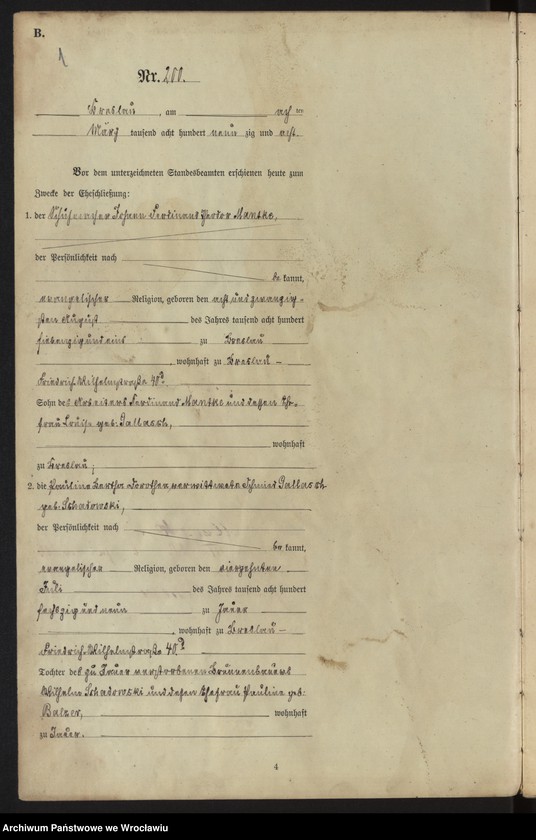 B.
1
Nr. 200.
Breslau, am achten
März tausend acht hundert neunzig und acht.
Vor dem unterzeichneten Standesbeamten erschienen heute zum
Zwecke der Eheschließung:
1. der Schuhmacher Johann Ferdinand Theodor Mantke,
der Persönlichkeit nach
bekannt,
evangelischer Religion, geboren den acht und zwanzig-
sten August des Jahres tausend acht hundert
siebenzig und eins zu Breslau
, wohnhaft zu Breslau -
Friedrich-Wilhelmstraße 40a.
Sohn des Arbeiters Ferdinand Mantke und dessen Ehe-
frau Louise geb: Pallasch,
wohnhaft
zu Breslau;
2. die Pauline Bertha Dorothea verwittwete Schmied Pallasch
geb: Schadowski,
der Persönlichkeit nach
bekannt,
evangelischer Religion, geboren den vierzehnten
Juli des Jahres tausend acht hundert
sechszig und neun zu Jauer
, wohnhaft zu Breslau -
Friedrich-Wilhelmstraße 40a
Tochter des zu Jauer verstorbenen Brunnenbauers
Wilhelm Schadowski und dessen Ehefrau Pauline geb:
Balzer, wohnhaft
zu Jauer.
4
Archiwum Państwowe we Wrocławiu